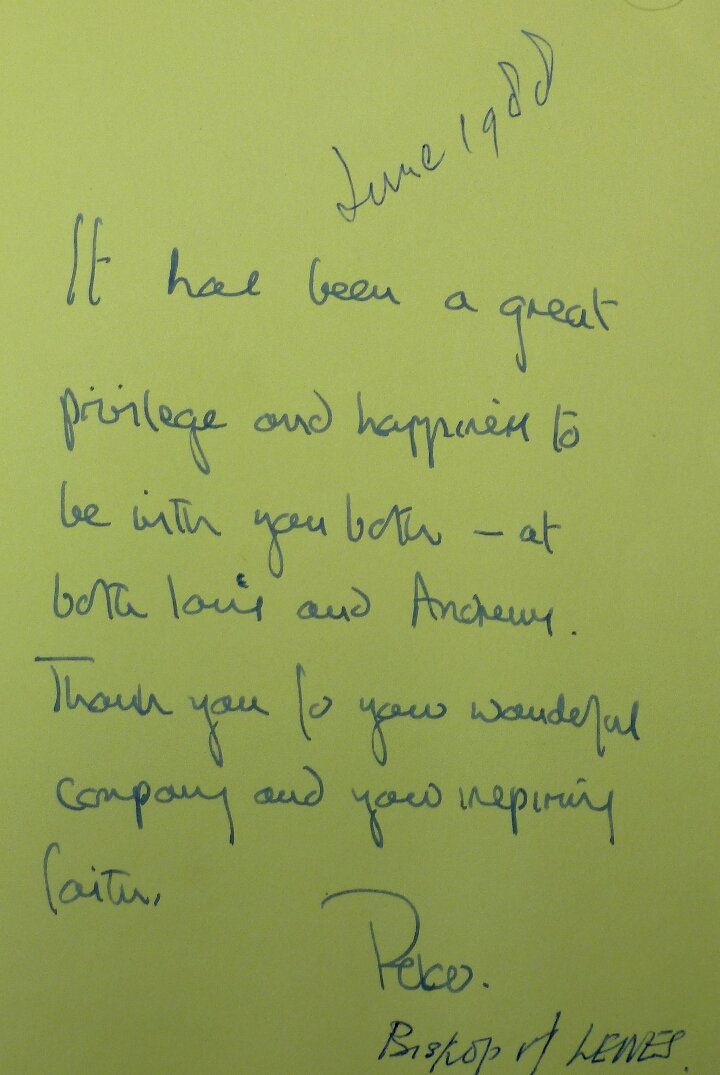 June 1988
It has been a great
privilege and happiness to
be with you both – at
both Iou's and Andrews.
Thank you for your wonderful
company and your inspiring
faith.
Peter.
Bishop of LEWES.